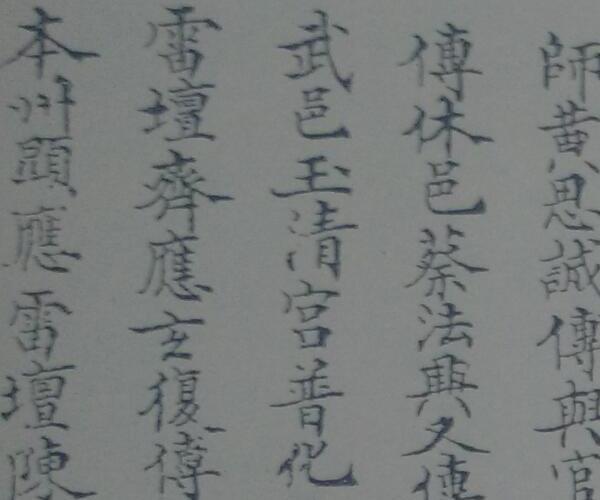 師黄思誠傳與官
傳休邑蔡法興又傳
武邑玉清宫普化
雷壇齊應玄復傳
本州顕應雷壇陳